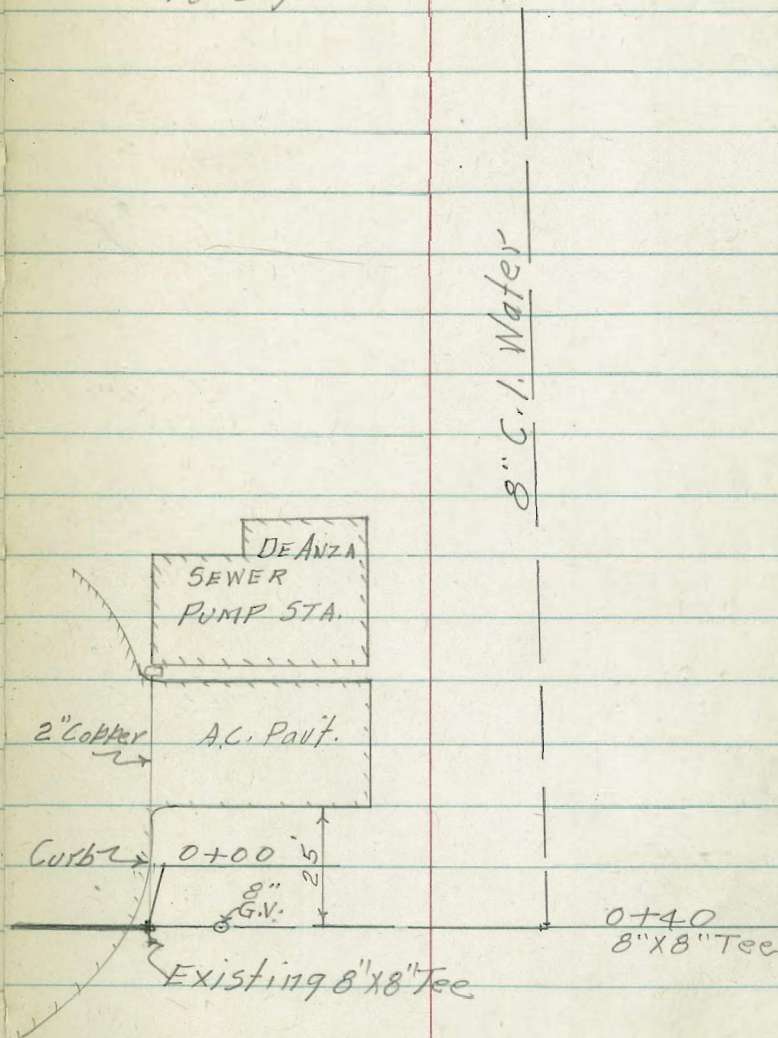 8" C.I. Water
DE ANZA
SEWER
PUMP STA.
2" Copper
A.C. Pav't.
Curb
0+00
25'
8"
G.V.
0+40
8"X8" Tee
Existing 8"X8" Tee